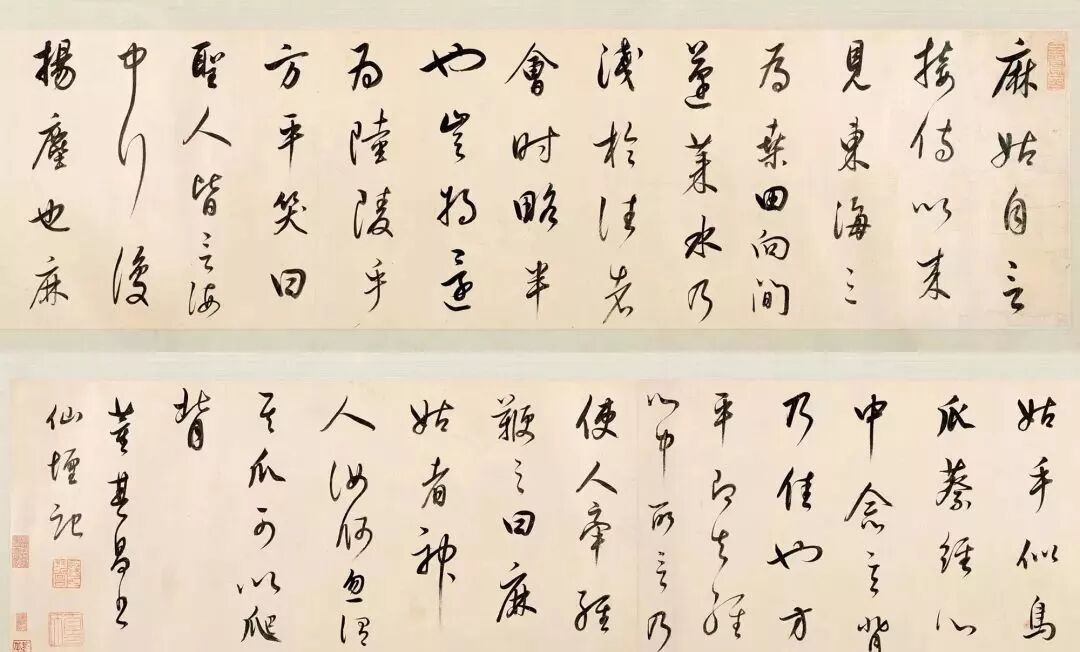 麻姑自言
接侍以来
見東海三
為桑田向間
蓬萊水乃
淺於往者
會时略半
也豈將還
為陸陵乎
方平笑曰
聖人皆言海
中行復
揚塵也麻
姑手似鳥
爪蔡經心
中念言背
乃佳也方
平即知經
心中所言乃
使人牽經
鞭之曰麻
姑者神
人汝何忽謂
其爪可以爬
背
董其昌书
仙壇記